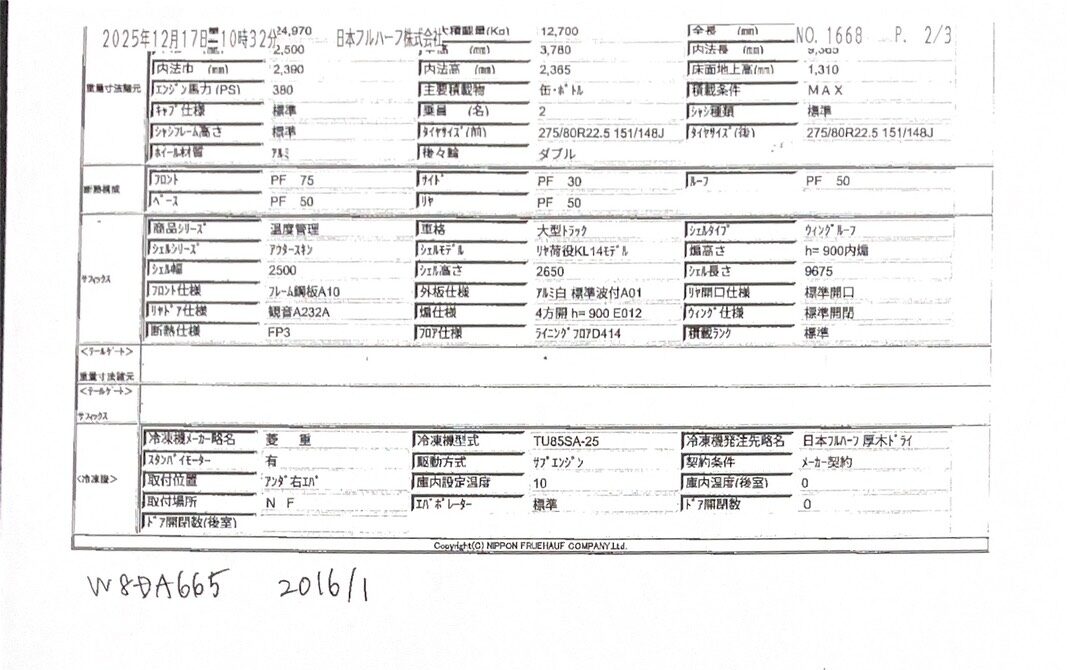 2025年12月17日 10時32分 日本フルハーフ株式会社 NO. 1668 P. 2/3
24,970 最大積載量(Kg) 12,700 全長 (mm)
2,500 (mm) 3,780 内法長 (mm)
内法巾 (mm) 2,390 内法高 (mm) 2,365 床面地上高(mm) 1,310
重量寸法諸元 エンジン馬力 (PS) 380 主要積載物 缶・ボトル 積載条件 MAX
キャブ仕様 標準 乗員 (名) 2 シャシ種類 標準
シャシフレーム高さ 標準 タイヤサイズ(前) 275/80R22.5 151/148J タイヤサイズ(後) 275/80R22.5 151/148J
ホイール材質 アルミ 後々輪 ダブル
断熱構成 フロント PF 75 サイド PF 30 ルーフ PF 50
ベース PF 50 リヤ PF 50
商品シリーズ 温度管理 車格 大型トラック シェルタイプ ウィングルーフ
シェルシリーズ アウタースキン シェルモデル リヤ荷役KL14モデル 煽高さ h= 900内煽
サフィックス シェル幅 2500 シェル高さ 2650 シェル長さ 9675
フロント仕様 フレーム鋼板A10 外板仕様 アルミ白 標準波付A01 リヤ開口仕様 標準開口
リヤドア仕様 観音A232A 煽仕様 4方開 h= 900 E012 ウィング仕様 標準開閉
断熱仕様 FP3 フロア仕様 ライニングフロアD414 積載ランク 標準
<テールゲート>
重量寸法諸元
<テールゲート>
サフィックス
冷凍機メーカー略名 菱 重 冷凍機型式 TU85SA-25 冷凍機発注先略名 日本フルハーフ 厚木ドライ
スタンバイモーター 有 駆動方式 サブエンジン 契約条件 メーカー契約
<冷凍機> 取付位置 アンダ右エバ 庫内設定温度 10 庫内温度(後室) 0
取付場所 N F エバポレーター 標準 ドア開閉数 0
ドア開閉数(後室)
Copyright(C) NIPPON FRUEHAUF COMPANY.Ltd.
W8DA665 2016/1